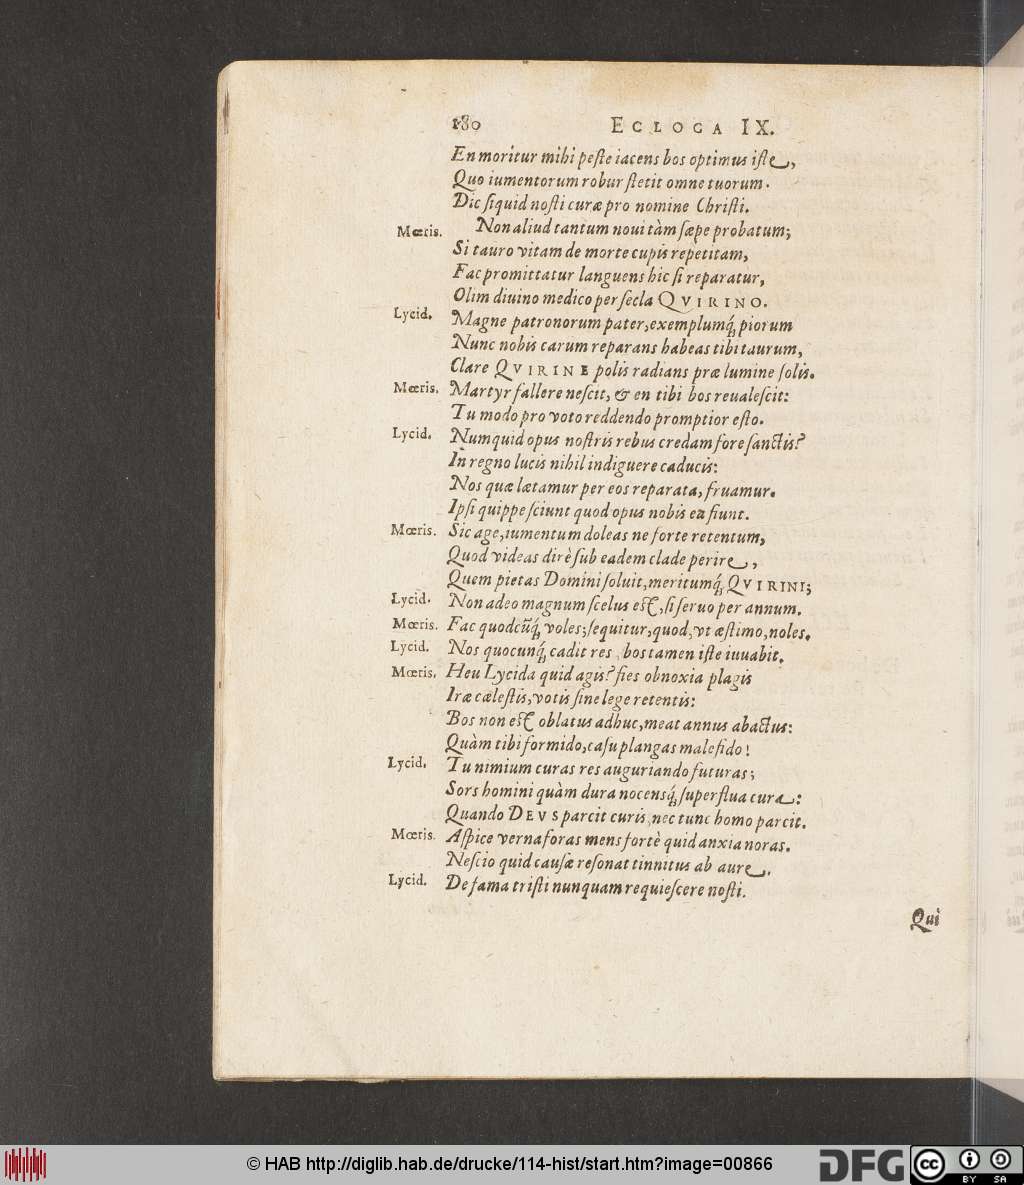 180 ECLOGA IX.
En moritur mihi peste iacens bos optimus iste,
Quo iumentorum robur stetit omne tuorum.
Dic siquid nosti curæ pro nomine Christi.
Mœris. Non aliud tantum noui tàm sæpe probatum;
Si tauro vitam de morte cupis repetitam,
Fac promittatur languens hic si reparatur,
Olim diuino medico per secla QVIRINO.
Lycid. Magne patronorum pater, exemplumq́ piorum
Nunc nobis carum reparans habeas tibi taurum,
Clare QVIRINE polis radians præ lumine solis.
Mœris. Martyr fallere nescit, & en tibi bos reualescit:
Tu modo pro voto reddendo promptior esto.
Lycid. Numquid opus nostris rebus credam fore sanctis?
In regno lucis nihil indiguere caducis:
Nos quæ lætamur per eos reparata, fruamur.
Ipsi quippe sciunt quod opus nobis ea fiunt.
Mœris. Sic age, iumentum doleas ne forte retentum,
Quod videas dirè sub eadem clade perire,
Quem pietas Domini soluit, meritumq́ QVIRINI;
Lycid. Non adeo magnum scelus est, si seruo per annum.
Mœris. Fac quodcũq́ voles; sequitur, quod, vt æstimo, noles.
Lycid. Nos quocunq́ cadit res, bos tamen iste iuuabit.
Mœris. Heu Lycida quid agis? fies obnoxia plagis
Iræ cælestis, votis sine lege retentis:
Bos non est oblatus adhuc, meat annus abactus:
Quàm tibi formido, casu plangas malefido!
Lycid. Tu nimium curas res auguriando futuras;
Sors homini quàm dura nocensq́ superflua cura:
Quando DEVS parcit curis, nec tunc homo parcit.
Mœris. Aspice verna foras mens fortè quid anxia noras.
Nescio quid causæ resonat tinnitus ab aure.
Lycid. De fama tristi nunquam requiescere nosti.
Qui
© HAB http://diglib.hab.de/drucke/114-hist/start.htm?image=00866
DFG
cc BY SA